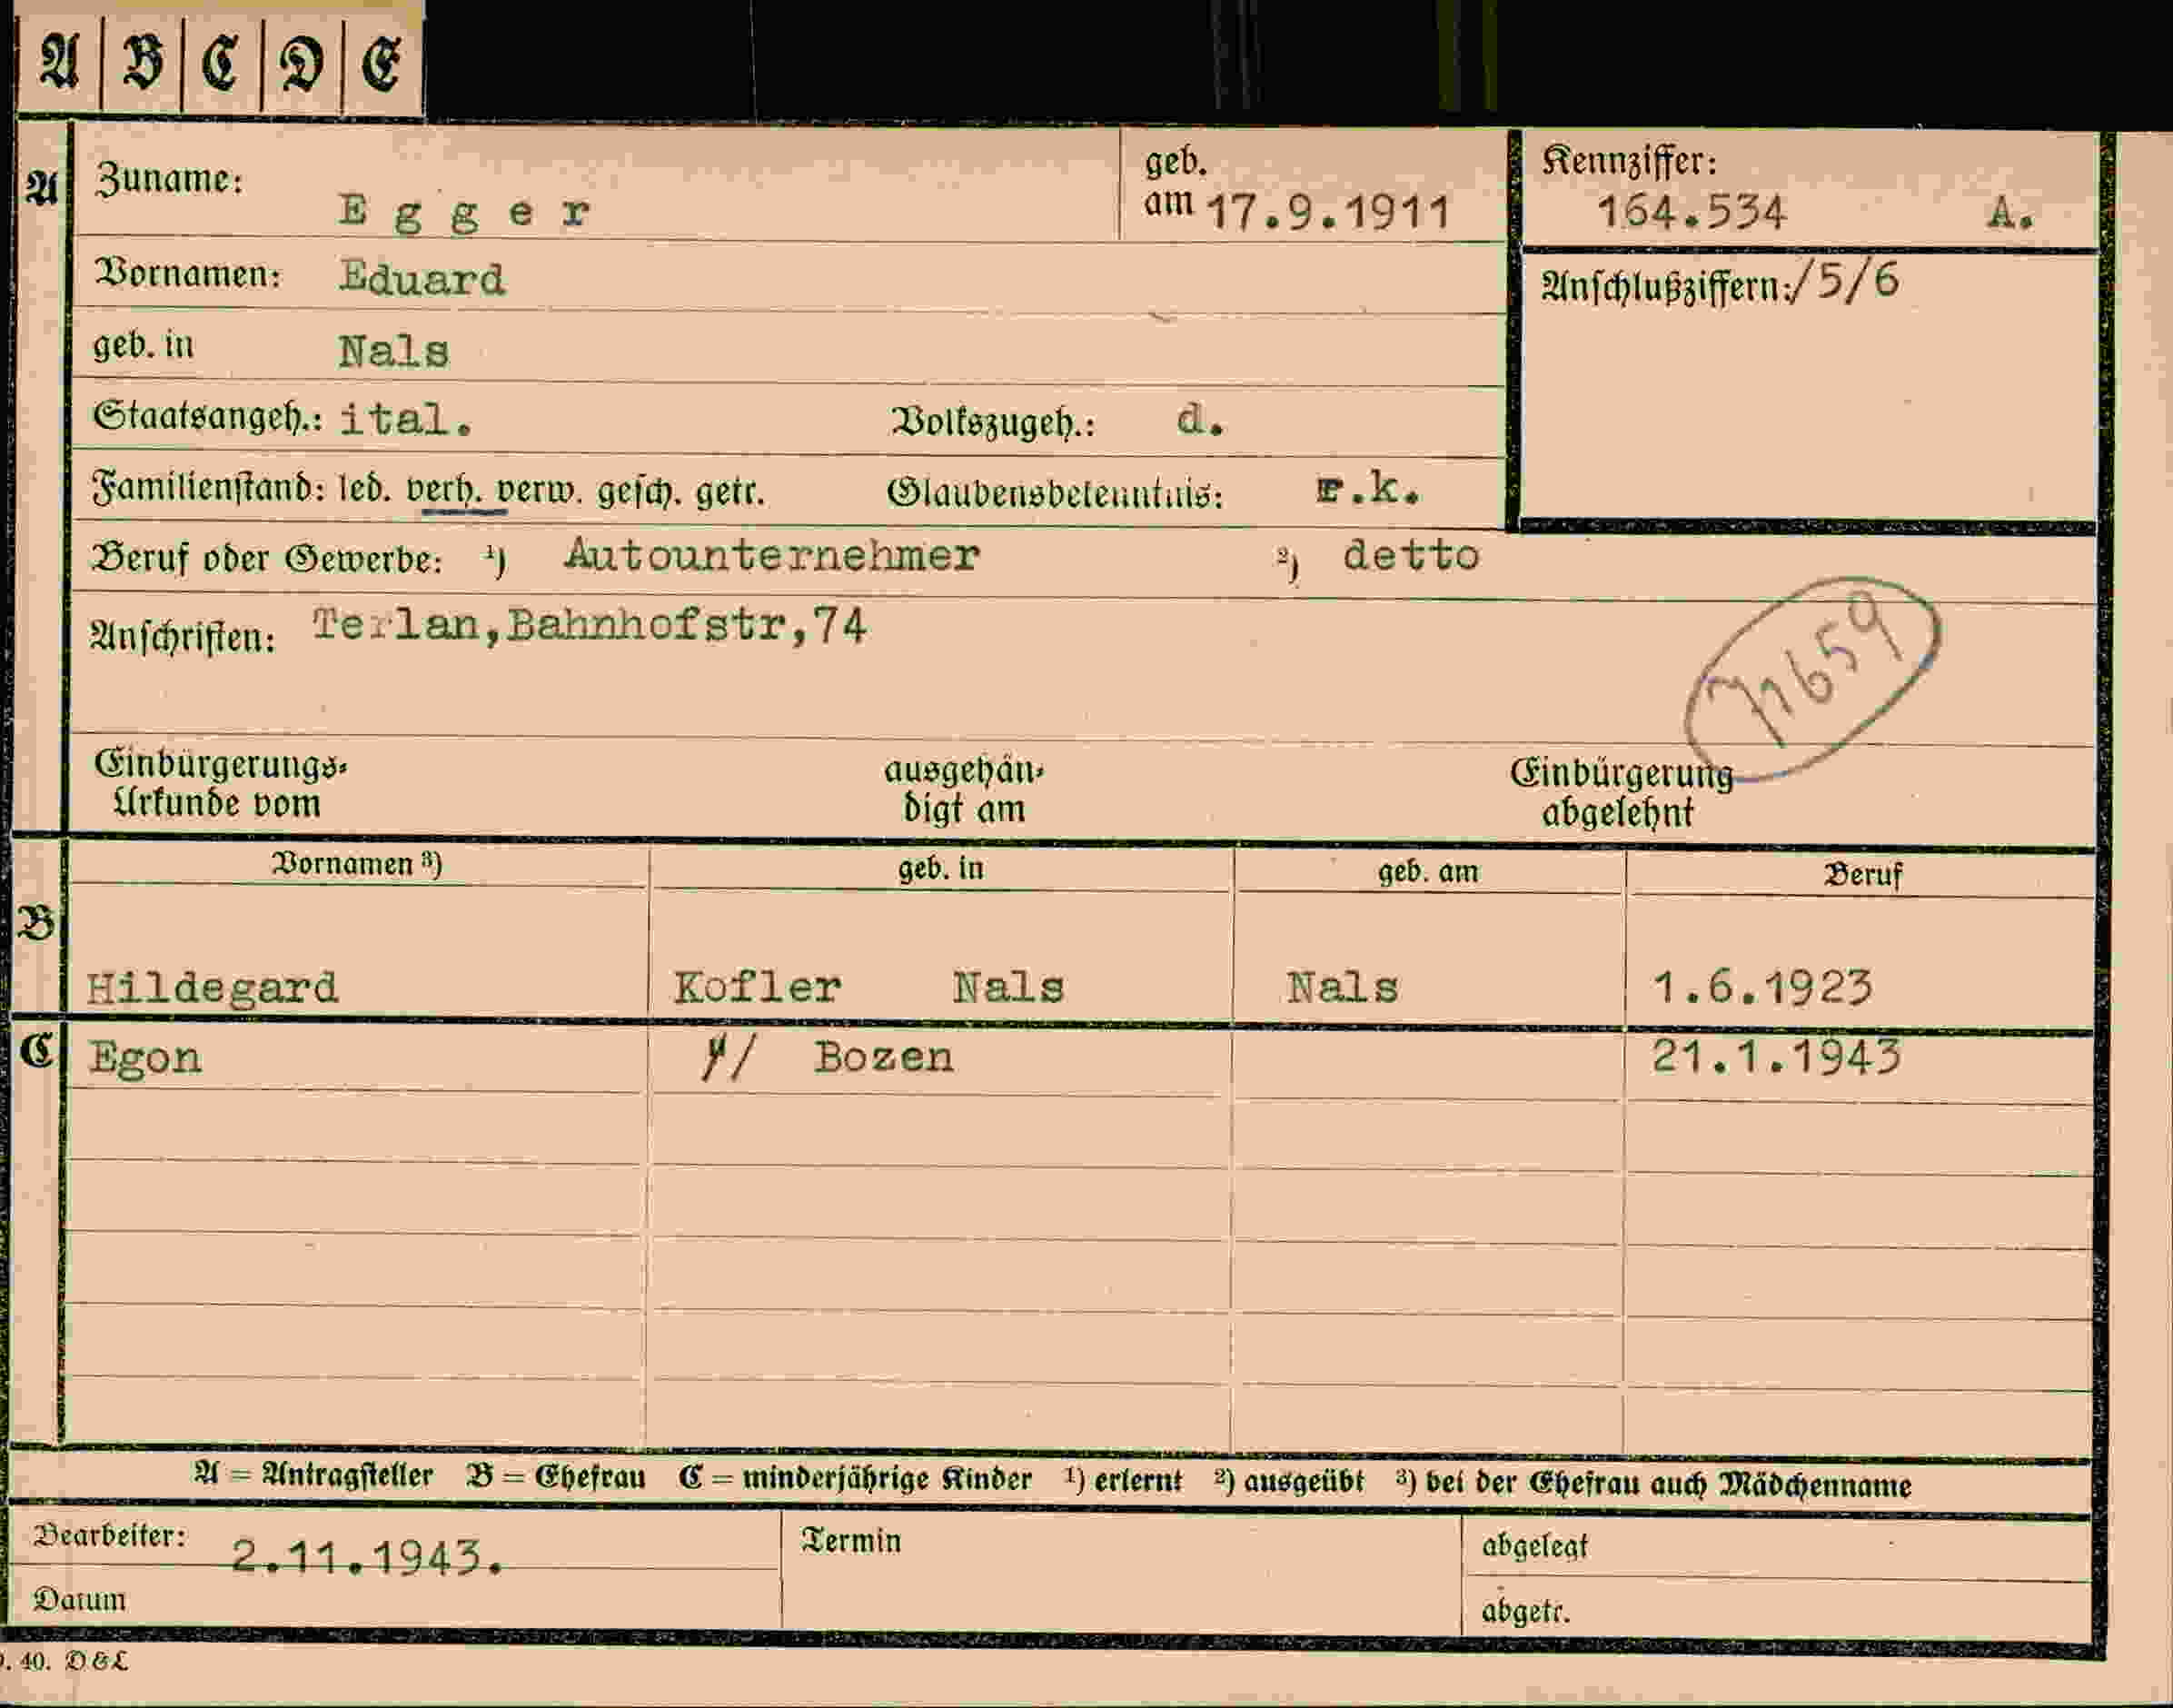 A B C D E
A Zuname: Egger geb. am 17.9.1911 Kennziffer: 164.534 A.
Vornamen: Eduard Anschlußziffern: /5/6
geb. in Nals
Staatsangeh.: ital. Volkszugeh.: d.
Familienstand: led. verh. verw. gesch. getr. Glaubensbekenntnis: r.k.
Beruf oder Gewerbe: ¹) Autounternehmer ²) detto
Anschriften: Terlan,Bahnhofstr,74
71659
Einbürgerungs- ausgehän- Einbürgerung
Urkunde vom digt am abgelehnt
Vornamen ³) geb. in geb. am Beruf
B
Hildegard Kofler Nals Nals 1.6.1923
C Egon Bozen 21.1.1943
A = Antragsteller B = Ehefrau C = minderjährige Kinder ¹) erlernt ²) ausgeübt ³) bei der Ehefrau auch Mädchenname
Bearbeiter: 2.11.1943. Termin abgelegt
Datum abgetr.
. 40. D & L